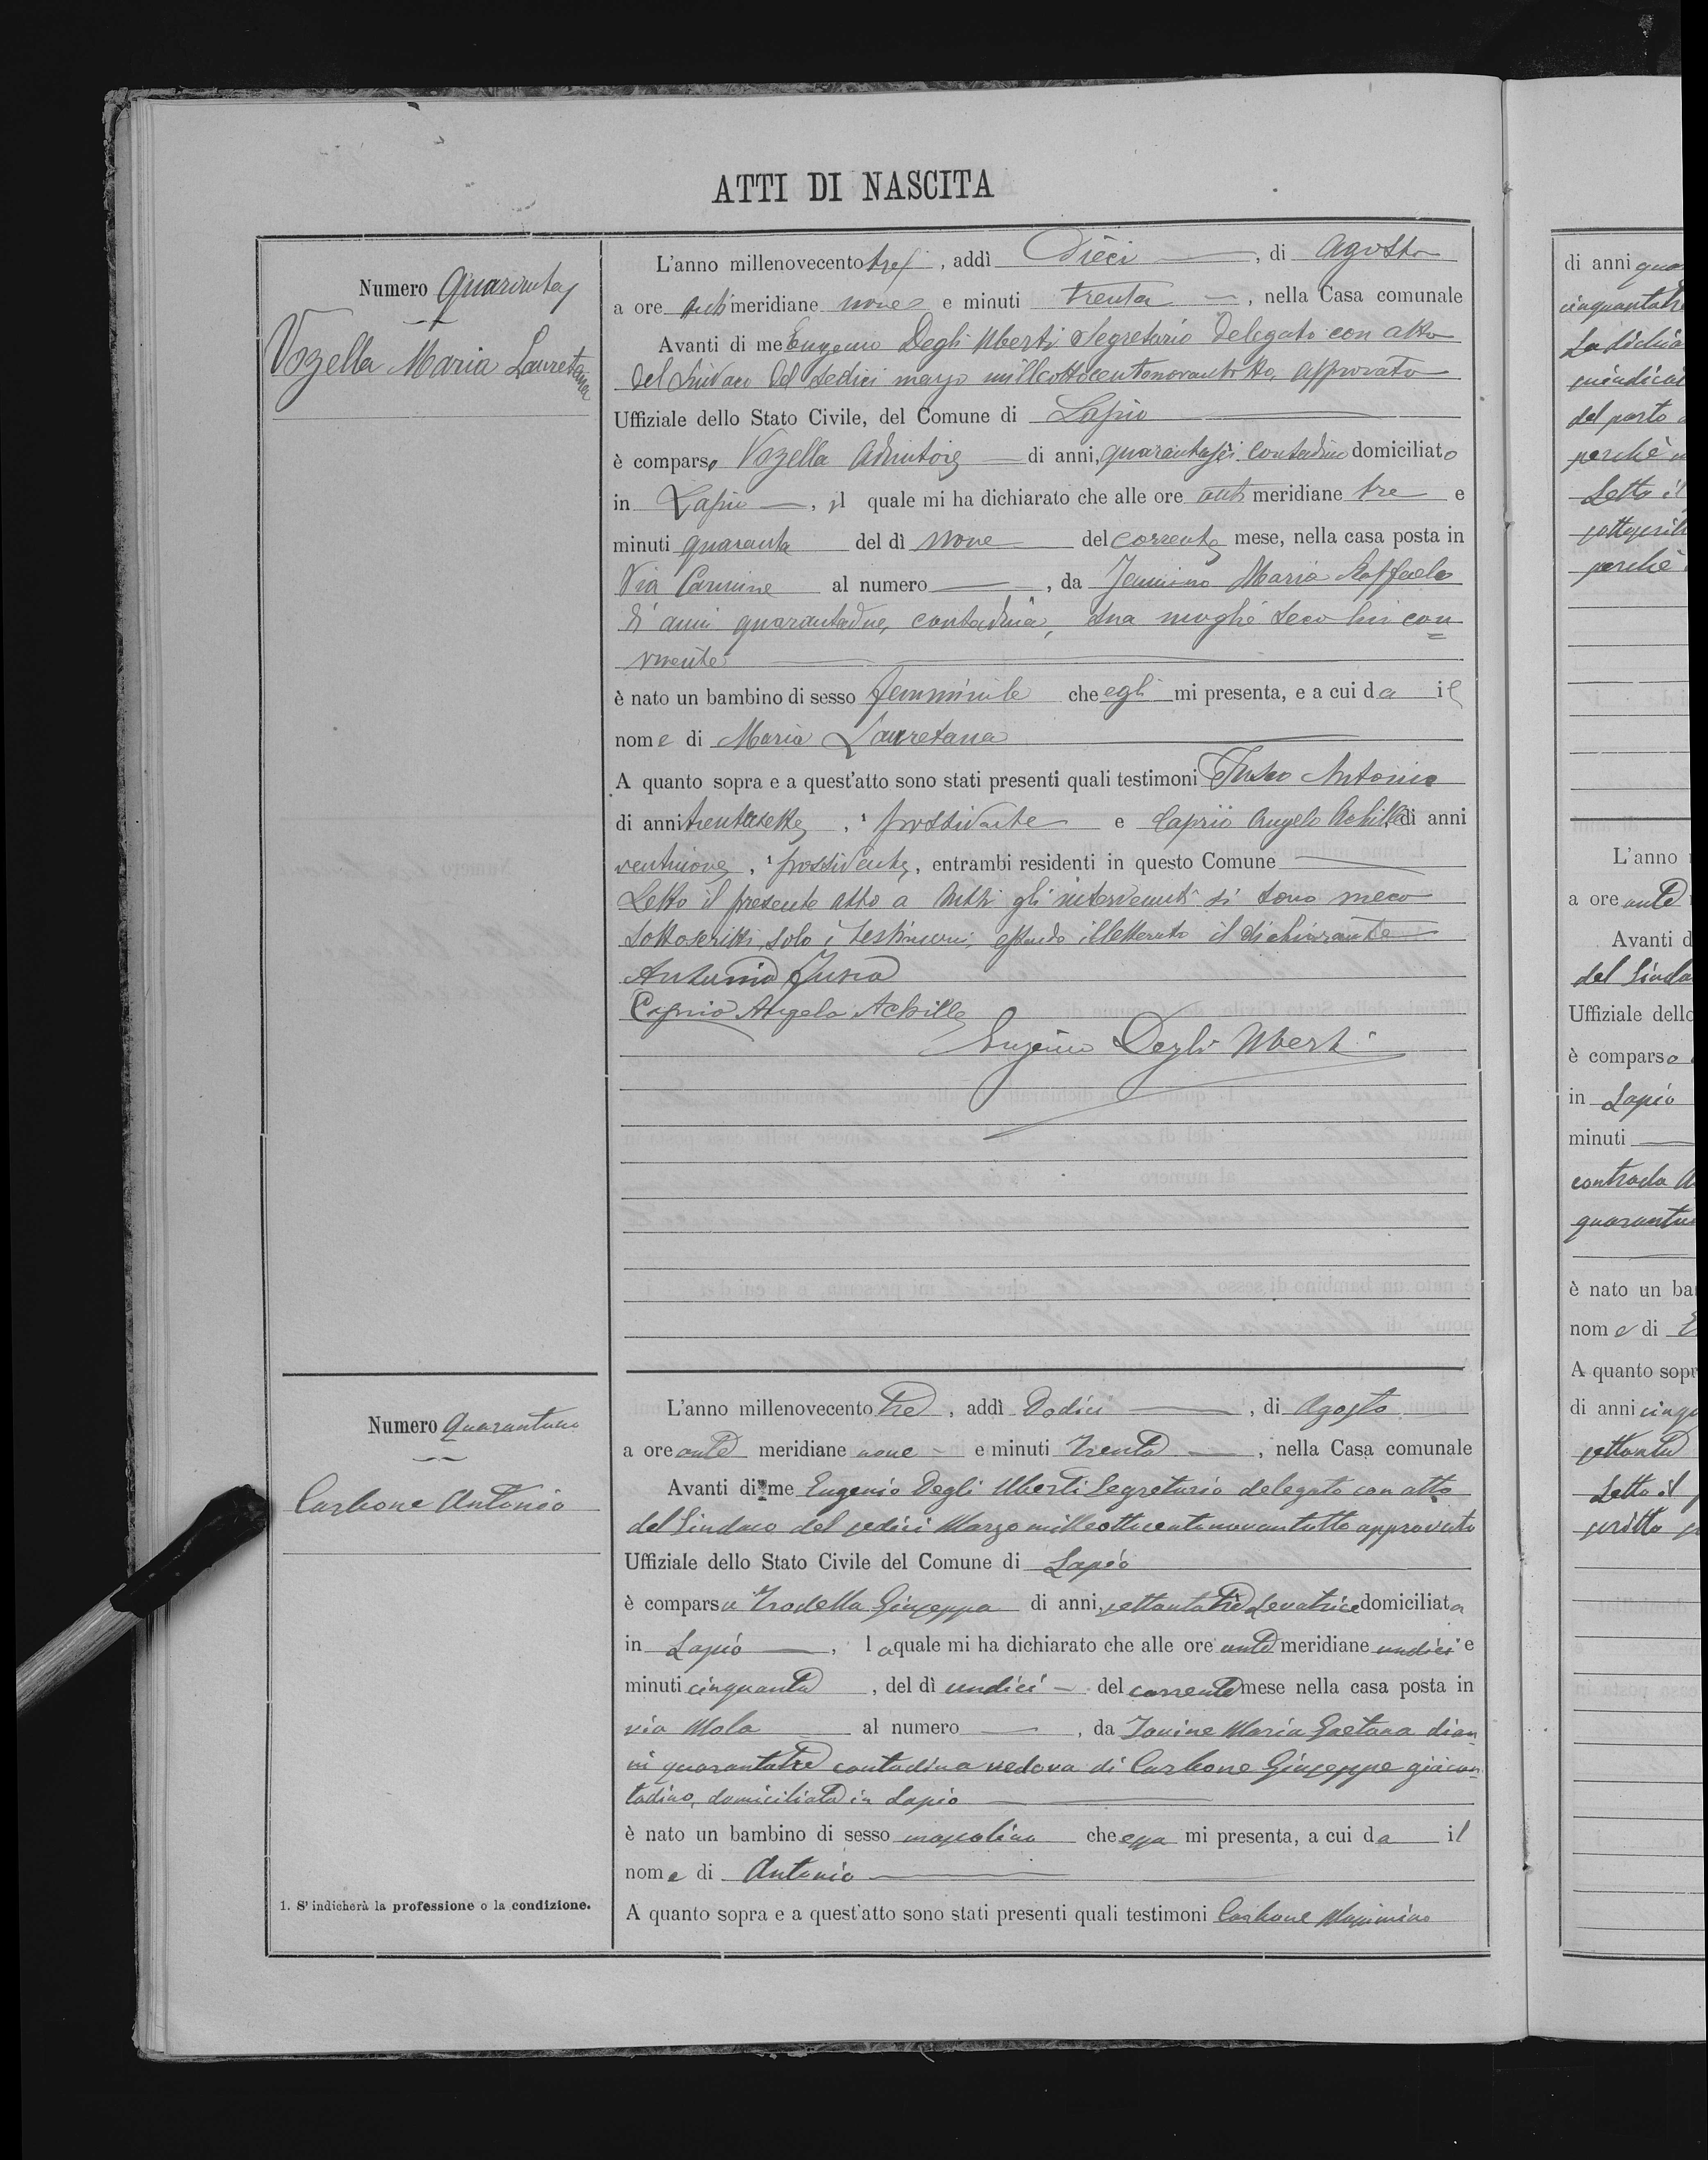 ATTI DI NASCITA
Numero Quaranta
Vozella Maria Lauretana
L'anno millenovecento tre, addì Dieci, di Agosto
a ore anti meridiane nove e minuti trenta, nella Casa comunale
Avanti di me Eugenio Degli Uberti Segretario Delegato con atto
del Sindaco del sedici marzo milleottocentonovantotto, approvato
Uffiziale dello Stato Civile, del Comune di Lapio
è comparso Vozella Adiutore di anni, quarantasei contadino domiciliato
in Lapio, il quale mi ha dichiarato che alle ore anti meridiane tre e
minuti quaranta del dì nove del corrente mese, nella casa posta in
Via Carmine al numero, da Maria Raffaela
di anni quarantadue, contadina, sua moglie seco lui con=
vivente
è nato un bambino di sesso femminile che egli mi presenta, e a cui da il
nome di Maria Lauretana
A quanto sopra e a quest'atto sono stati presenti quali testimoni Antonio
di anni trentasette, ¹ possidente e Caprio Angelo Achille di anni
ventinove, ¹ possidente, entrambi residenti in questo Comune
Letto il presente atto a tutti gli intervenuti si sono meco
sottoscritti solo i testimoni, essendo illetterato il dichiarante
Antonio
Caprio Angelo Achille
Eugenio Degli Uberti
Numero Quarantuno
Carbone Antonio
L'anno millenovecento tre, addì Dodici, di Agosto
a ore ante meridiane nove e minuti trenta, nella Casa comunale
Avanti di me Eugenio Degli Uberti Segretario delegato con atto
del Sindaco del sedici Marzo milleottocentonovantotto approvato
Uffiziale dello Stato Civile del Comune di Lapio
è comparsa Trodella Giuseppa di anni, settantatre Levatrice domiciliata
in Lapio, la quale mi ha dichiarato che alle ore ante meridiane undici e
minuti cinquanta, del dì undici del corrente mese nella casa posta in
via Mola al numero, da Maria Gaetana di an=
ni quarantatre contadina vedova di Carbone Giuseppe già con=
tadino, domiciliata in Lapio
è nato un bambino di sesso mascolino che essa mi presenta, a cui da il
nome di Antonio
A quanto sopra e a quest'atto sono stati presenti quali testimoni Carbone
1. S'indicherà la professione o la condizione.
di anni
cinquantatre
La dichia
del parto
perchè
Letto il
perchè
L'anno
a ore ante
Avanti d
del Sinda
Uffiziale dello
è comparsa
in Lapio
minuti
contrada
è nato un ba
nome di
A quanto sopr
di anni cinqu
settanta
Letto il